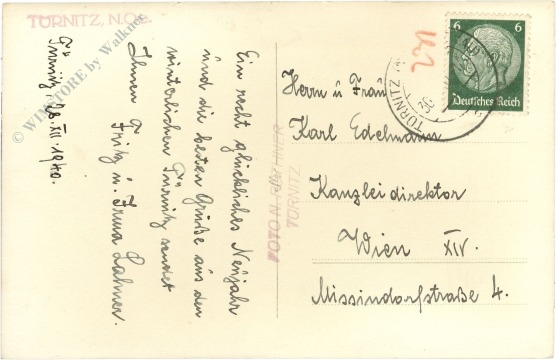 TÜRNITZ, N.Oe.
© WINSTORE by Walknet
Türnitz, 28. XII. 1940.
Ein recht glückliches Neujahr
und die besten Grüße aus dem
winterlichen Türnitz sendet
Ihnen Fritz u. Irma Lahner.
FOTO
TÜRNITZ
221
6 6
Deutsches Reich
TÜRNITZ
30
Herrn u Frau
Karl Edelmann
Kanzleidirektor
Wien XIV.
Missindorfstraße 4.